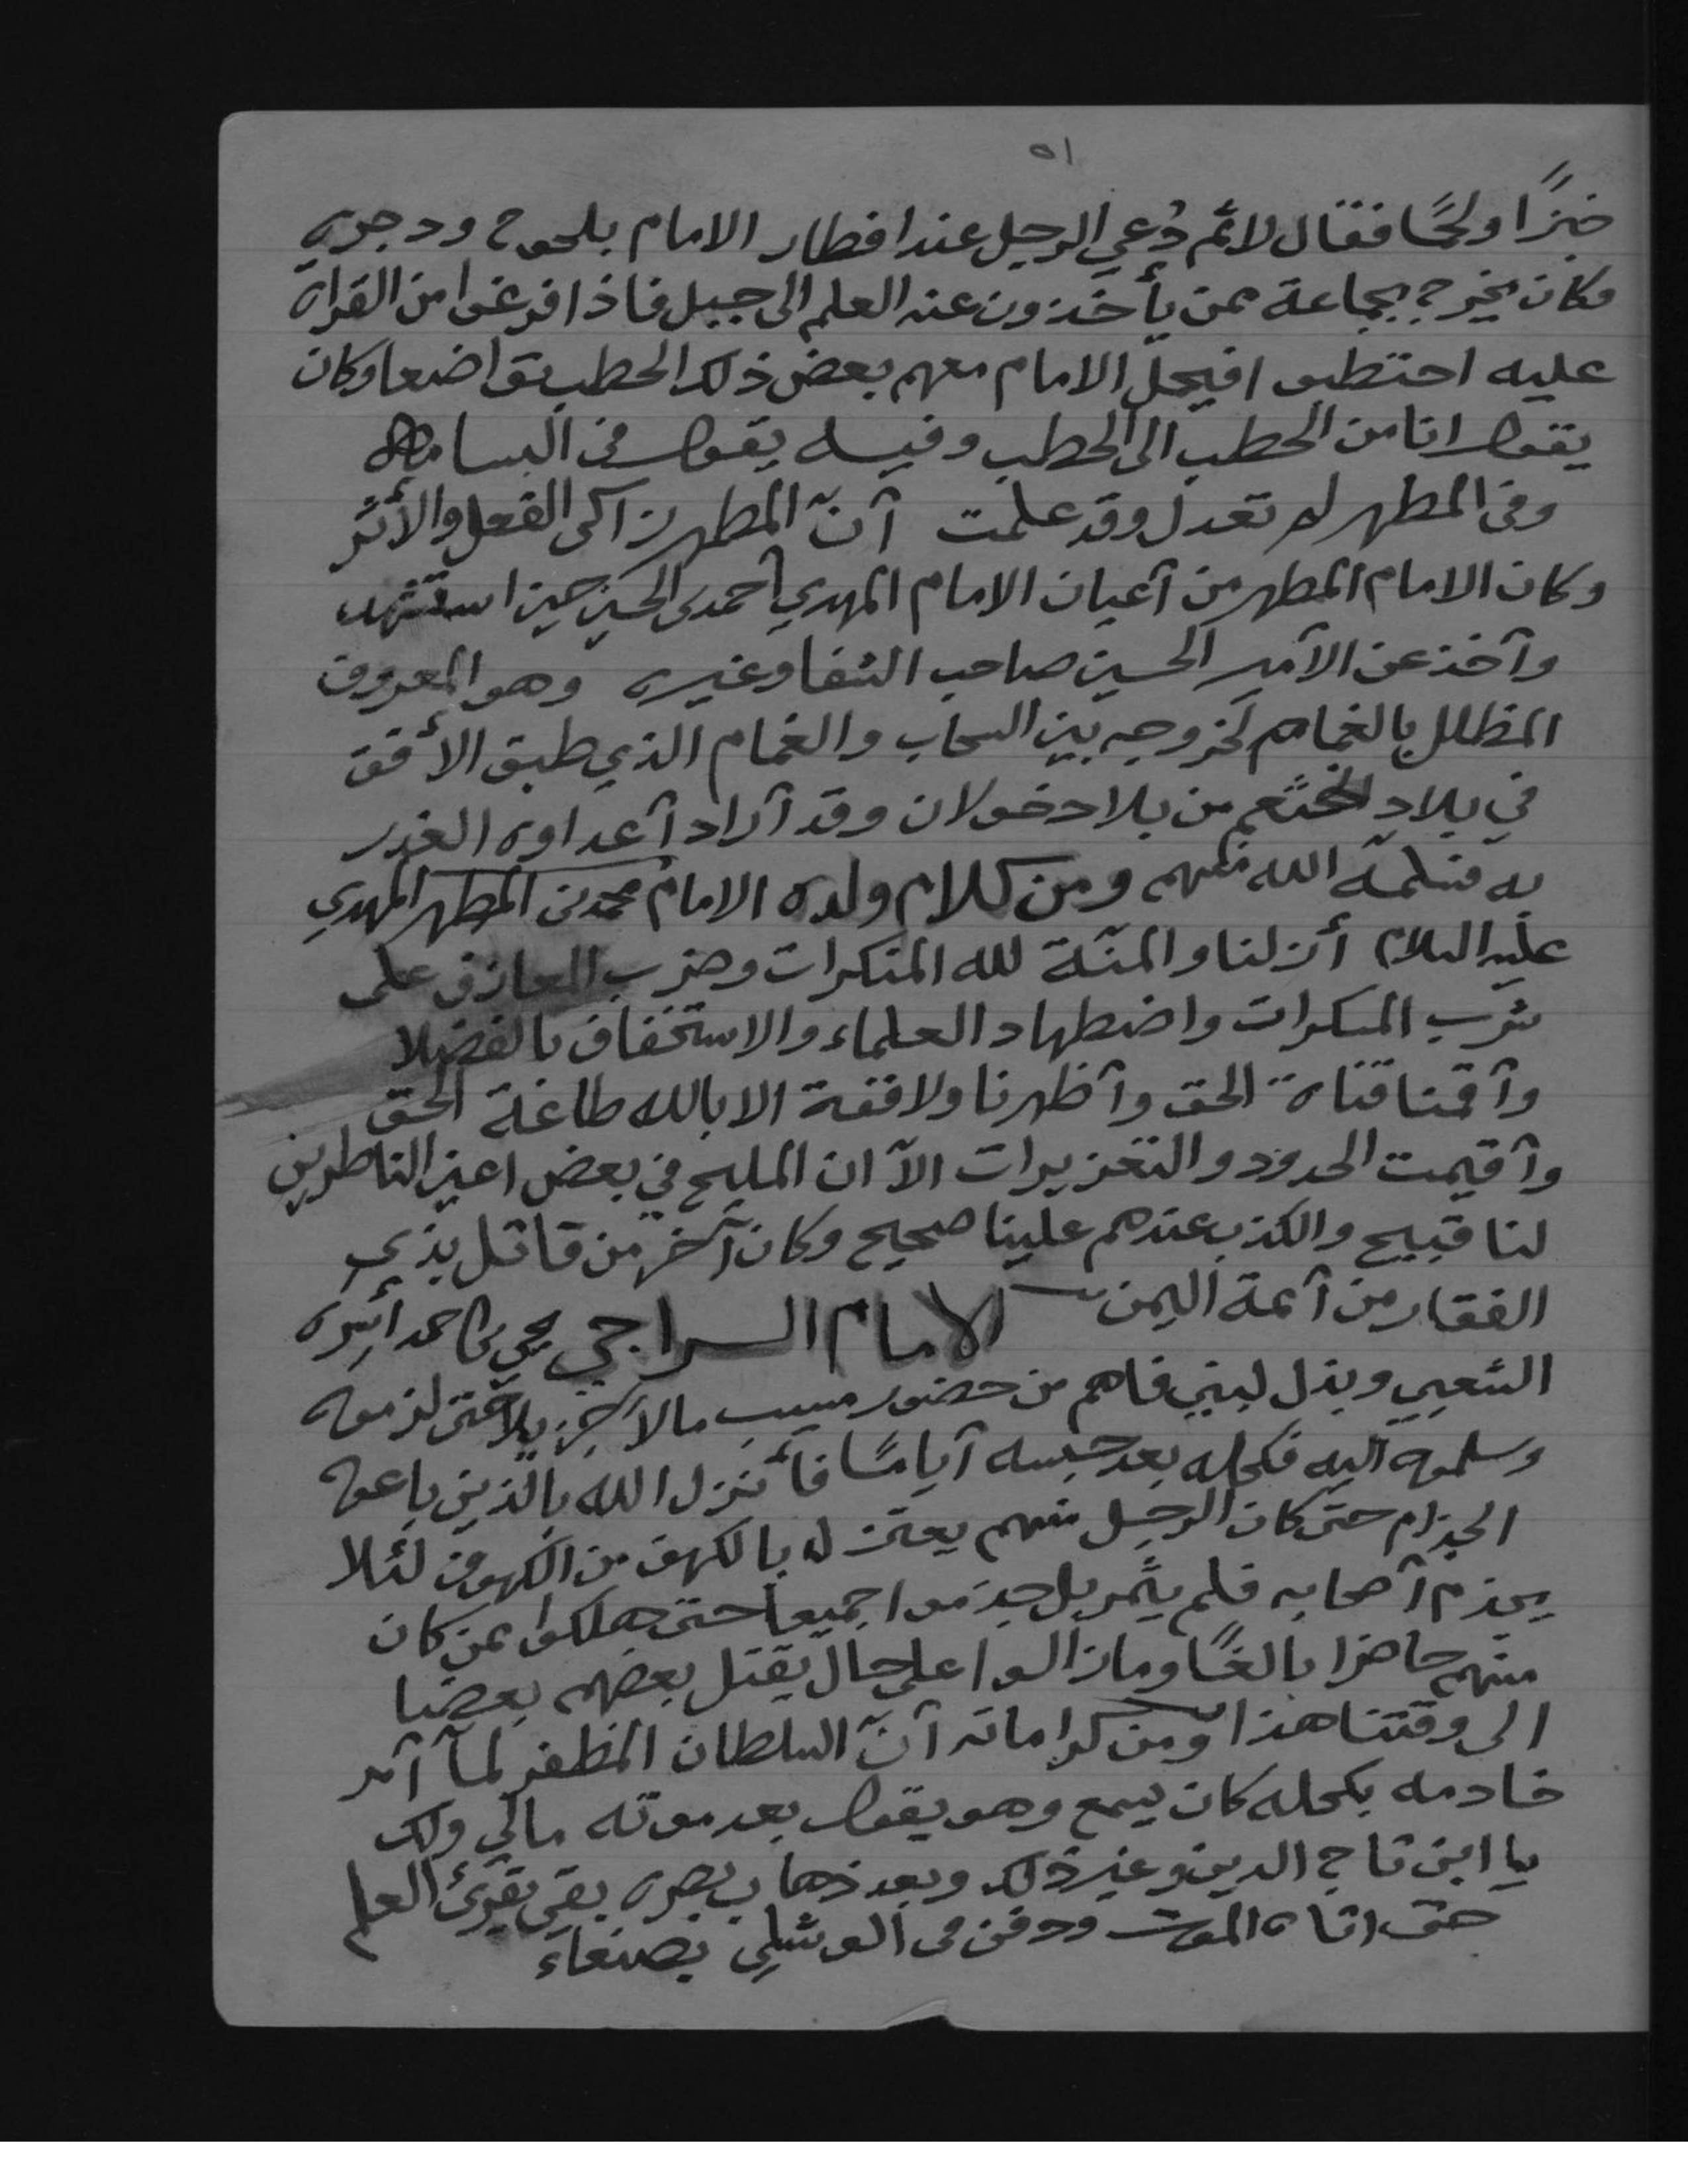 ٥١
خبزًا ولحمًا فقال لا ثم دُعي الرجل عند افطار الامام بلحوح ودجرة
وكان يخرج بجماعة ممن يأخذون عنه العلم الى جبل فاذا فرغوا من القراه
عليه احتطبوا فيحمل الامام معهم بعض ذلك الحطب تواضعا وكان
يقول انا من الحطب الى الحطب وفيه يقول في البسامه
وفي المطهر لم تعدل وقد علمت أنّ المطهر زاكى الفعل والأثر
وكان الامام المطهر من أعيان الامام المهدي أحمد بن الحسين حين استشهد
وأخذ عن الأمير الحسين صاحب الشفا وغيره وهو المعروف
المظلل بالغمام لخروجه بين السحاب والغمام الذي طبق الأفق
في بلاد خثعم من بلاد خولان وقد أراد أعداوه الغدر
به فسلمه الله منهم ومن كلام ولده الامام محمد بن المطهر المهدي
عليه السلام أزلنا والمنّة لله المنكرات وضرب المعازف على
شرب المسكرات واضطهاد العلماء والاستخفاف بالفضلا
وأقمنا قناة الحق وأظهرنا ولا قوة الا بالله طاغة الحق
وأقيمت الحدود والتعزيرات الاّ ان المليح في بعض اعين الناظرين
لنا قبيح والكذب عندهم علينا صحيح وكان آخر من قاتل بذي
الفقار من أئمة اليمن الامام السراجي يحي بن احمد أسره
الشعبي وبذل لبني فاهم من حضور مالا حتى لزموه
وسلموه اليه فكحله بعد حبسه أيامًا فأنزل الله بالذين باعوه
الجذام حتى كان الرجل منهم يعتزل بالكهف من الكهوف لئلا
يجذم أصحابه فلم يثمر بل جذموا جميعا حتى هلكوا ممن كان
منهم حاضرا بالغًا وما زالوا على حال يقتل بعضهم بعضا
الى وقتنا هذا ومن كراماته أنّ السلطان المظفر لمّا أمر
خادمه بكحله كان يسمع وهو يقول بعد موته مالي ولك
يا ابن تاج الدين وغير ذلك وبعد ذهاب بصره بقي يقرئ العلم
حتى اتاه الموت ودفن في الوشلي بصنعاء